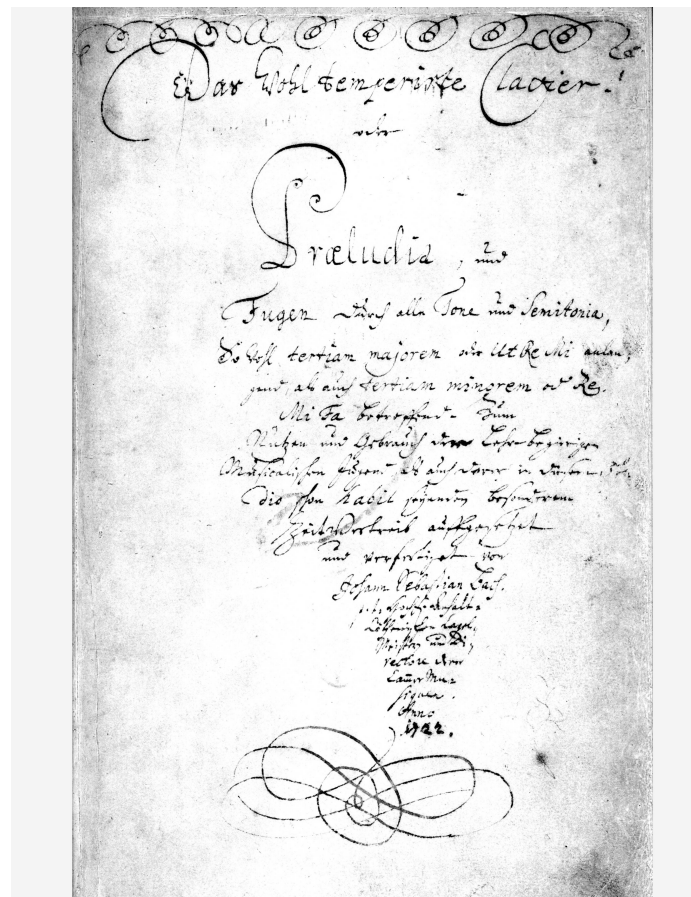 Das Wohltemperirte Clavier.
oder
Præludia, und
Fugen durch alle Tone und Semitonia,
So wohl tertiam majorem oder Ut Re Mi anlan-
gend, als auch tertiam minorem oder Re
Mi Fa betreffend. Zum
Nutzen und Gebrauch der Lehr-begierigen
Musicalischen Jugend, als auch derer in diesem stu-
dio schon habil seyenden besonderem
Zeitvertreib auffgesetzet
und verfertiget von
Johann Sebastian Bach.
p. t. Hochfürstlich Anhalt-
Cöthenischen Capel-
Meistern und Di-
rectore derer
Cammer Mu-
siquen.
Anno
1722.